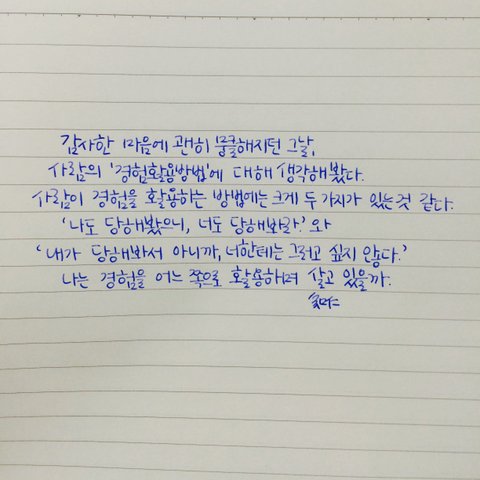 감사한 마음에 괜히 뭉클해지던 그날,
사람의 '경험활용방법'에 대해 생각해봤다.
사람이 경험을 활용하는 방법에는 크게 두가지가 있는것 같다.
'나도 당해봤으니, 너도 당해봐라.' 와
'내가 당해봐서 아니까, 너한테는 그러고 싶지 않다.'
나는 경험을 어느 쪽으로 활용하며 살고 있을까.